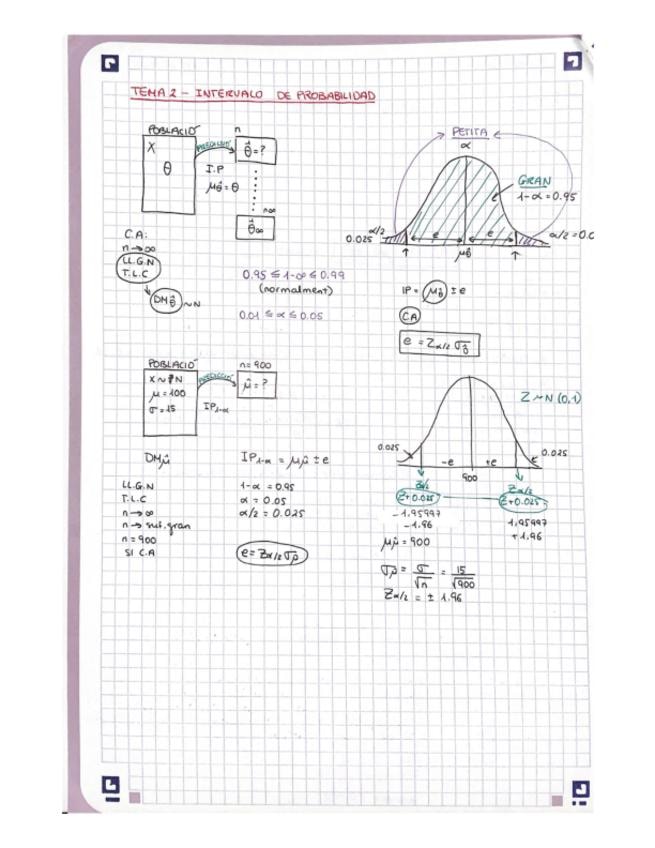 TEMA 2 - INTERVALO DE PROBABILIDAD
POBLACIÓ
n
X
θ
PREDICCIÓ
θ̂ = ?
I.P
μθ̂ = θ
n∞
θ̂∞
C.A:
n → ∞
LL.G.N
T.L.C
DMθ̂ ~ N
0.95 ≤ 1-∞ ≤ 0.99
(normalment)
0.01 ≤ α ≤ 0.05
PETITA
α
GRAN
1-α = 0.95
α/2
0.025
e
e
α/2 = 0.0
μθ̂
IP = μθ̂ ± e
CA
e = Zα/2 σθ̂
POBLACIÓ
n = 900
X ~ N
μ = 100
σ = 15
PREDICCIÓ
μ̂ = ?
IP1-α
DMμ̂
IP1-α = μμ̂ ± e
LL.G.N
T.L.C
n → ∞
n → suf. gran
n = 900
SI C.A
1-α = 0.95
α = 0.05
α/2 = 0.025
e = Zα/2 σμ̂
Z ~ N (0,1)
0.025
0.025
-e
+e
900
Zα/2
Z+0.025
Z+0.025
-1.95997
-1.96
1.95997
+1.96
μμ̂ = 900
σμ̂ = σ/√n = 15/√900
Zα/2 = ± 1.96